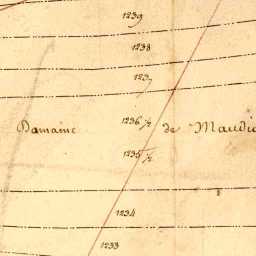 1239
1238
1237
Domaine 1236 1/2 de Maudic
1235 1/2
1234
1233